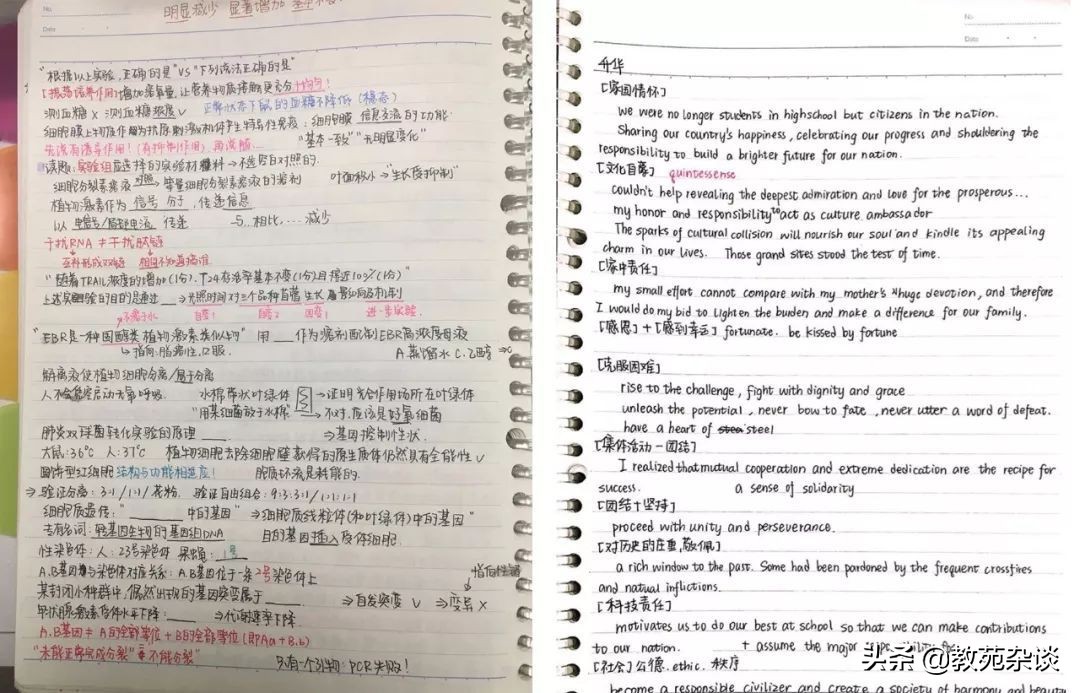 No.
Date
明显减少 显著增加
"根据以上实验,正确的是"VS"下列说法正确的是"
[振荡培养作用]增加溶氧量,让营养物质接触更充分+均匀!
测血糖 X 测血糖浓度 ✓ 正常状态下鼠的血糖不降低(稳态)
细胞膜上物质作为抗原刺激机体产生特异性免疫:细胞膜 信息交流的功能
"基本一致""无明显变化"
先说有诱导作用!(有抑制作用)再读题...
读题:实验组选择的实验材料→不选空白对照的.
细胞分裂素溶液 对照→等量细胞分裂素溶液的溶剂 叶面积小→"生长被抑制"
植物激素作为 信号 分子,传递信息
以 电信号/局部电流 传递 与...相比,...减少
干扰RNA ≠ 干扰肽链
互补形成双链
"随着TRAIL浓度的增加(1分),↑24存活率基本不变(1分)且接近10%(1分)"
上述实验的目的是通过 __ →光照时间对三个品种苜蓿生长的影响及机制
不溶于水 自变1 自变2 因变1 进一步实验
"EBR是一种固醇类植物激素类似物" 用 __ 作为溶剂配制EBR高浓度母液
→指向:脂溶性,口服. A.蒸馏水 C.乙醇
解离液使植物细胞分离
水棉带状叶绿体 →证明光合作用场所在叶绿体
"用某细菌放于水棉" →不对,应该是好氧细菌
肺炎双球菌转化实验的原理 ____. ⇒基因控制性状.
大鼠:36°C 人:37°C 植物细胞去除细胞壁获得的原生质体仍然具有全能性 ✓
圆饼型红细胞 结构与功能相适应!
⇒验证分离:3:1/1:1/花粉. 验证自由组合:9:3:3:1/1:1:1:1
细胞质遗传:"____中的基因" ⇒细胞质线粒体(和叶绿体)中的基因"
专有名词:戟基因生物的基因组DNA 目的基因插入受体细胞.
性染色体:人:23号染色体 果蝇:1号
A.B基因与染色体对应关系:A.B基因位于一条2号染色体上
某封闭小种群中,偶然出现的基因突变属于____. ⇒自发突变 ✓ ⇒变异 X
甲状腺激素受体水平下降: __ ⇒代谢速率下降
A.B基因 ≠ A的全部等位+B的全部等位(即Aa+B.b)
"未能正常完成分裂" ≠ "不能分裂"
只有一个引物:PCR失败!
No.
Date
升华
[家国情怀]
we were no longer students in highschool but citizens in the nation.
Sharing our country's happiness, celebrating our progress and shouldering the
responsibility to build a brighter future for our nation.
[文化自豪] quintessense
couldn't help revealing the deepest admiration and love for the prosperous...
my honor and responsibility to act as culture ambassador
The sparks of cultural collision will nourish our soul and kindle its appealing
charm in our lives. Those grand sites stood the test of time.
[家中责任]
my small effort cannot compare with my mother's huge devotion, and therefore
I would do my bid to lighten the burden and make a difference for our family.
[感恩]+[感到幸运] fortunate. be kissed by fortune
[克服困难]
rise to the challenge, fight with dignity and grace
unleash the potential, never bow to fate, never utter a word of defeat.
have a heart of steel
[集体活动-团结]
I realized that mutual cooperation and extreme dedication are the recipe for
success. a sense of solidarity
[团结+坚持]
proceed with unity and perseverance.
[对历史的庄重,敬佩]
a rich window to the past. Some had been pardoned by the frequent crossfires
and natual inflictions.
[科技责任]
motivates us to do our best at school so that we can make contributions
to our nation. + assume the major
[社会]公德. ethic. 秩序
become a responsible civilizer and create a society of harmony and
头条@教苑杂谈